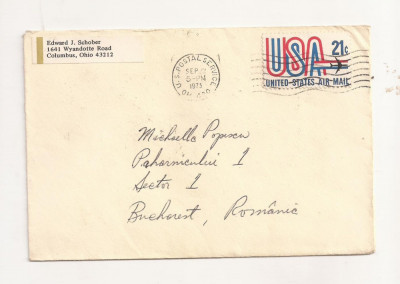 Edward J. Schober
1641 Wyandotte Road
Columbus, Ohio 43212
U.S. POSTAL SERVICE
SEP
PM
1973
USA 21c
UNITED STATES AIR MAIL
Michaella Popescu
Paharnicului 1
Sector 1
Bucharest, Românic